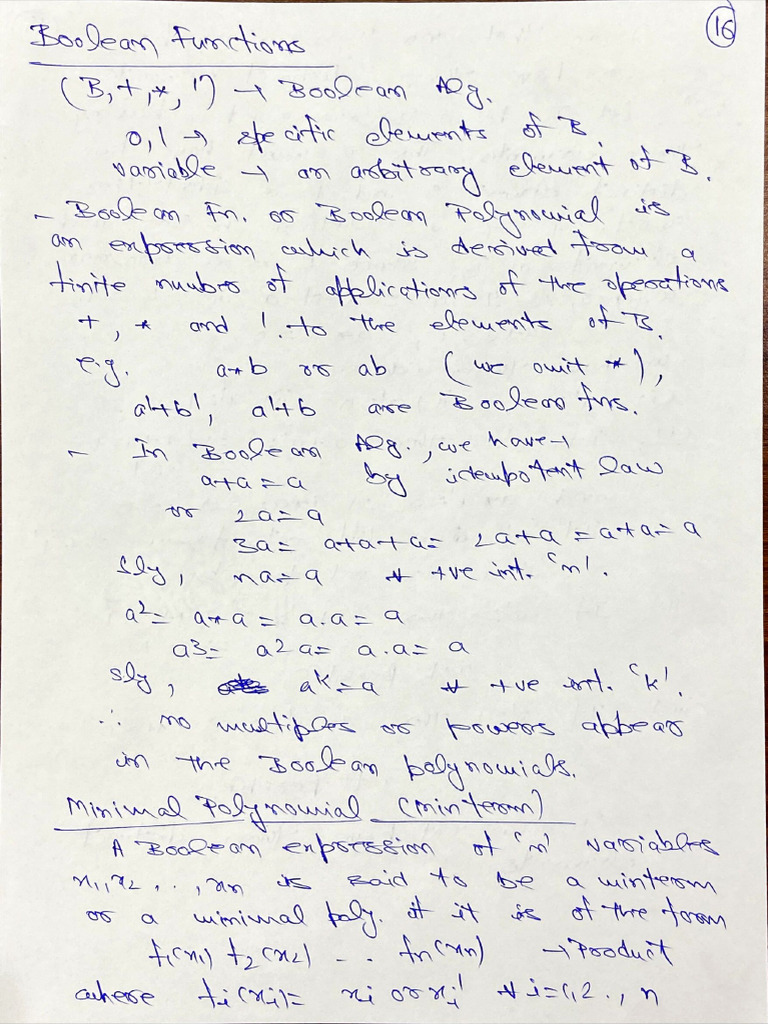 16
Boolean Functions
(B, +, *, ') → Boolean Alg.
0, 1 → specific elements of B.
variable → an arbitrary element of B.
- Boolean Fn. or Boolean Polynomial is
an expression which is derived from a
finite number of applications of the operations
+, * and '. to the elements of B.
e.g. a*b or ab (we omit *),
a'+b', a'+b are Boolean fns.
- In Boolean Alg., we have →
a+a = a by idempotent law
or 2a = a
3a = a+a+a = 2a+a = a+a = a
Sly, na = a ∀ +ve int. 'n'.
a² = a*a = a.a = a
a³ = a²a = a.a = a
Sly, aᵏ = a ∀ +ve int. 'k'.
∴ no multiples or powers appear
in the Boolean polynomials.
Minimal Polynomial (minterm)
A Boolean expression of 'n' variables
x₁, x₂ . . , xn is said to be a minterm
or a minimal poly. if it is of the form
f₁(x₁) f₂(x₂) . . . fn(xn) → Product
where fi(xi) = xi or xi' ∀ i = 1, 2 . , n